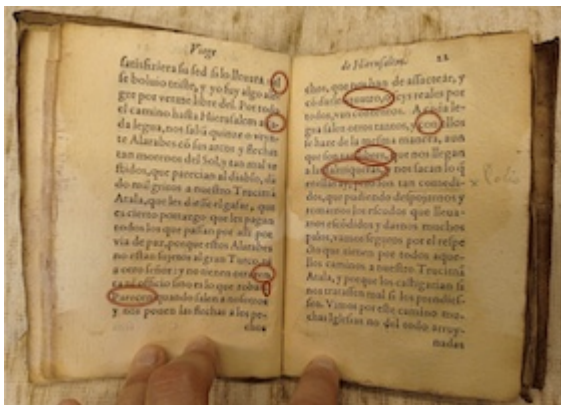 Viage
satisfiziera su sed si lo lleuara
se boluio triste, y yo fuy algo
gre por verme libre del. Por todo
el camino hasta Hierusalem a
da legua, nos saliã quinze o veyn
te Alarabes cõ sus arcos y flechas
tan morenos del Sol, y tan mal ve
stidos, que parecian al diablo, dã
do mil gritos a nuestro Trucimã
Atala, que les diesse el gafar, que
es cierto portazgo que les pagan
todos los que passan por alli por
via de paz, porque estos Alarabes
no estan sujetos al gran Turco, ni
a otro señor: y no tienen otra
ta ni officio sino es lo que roban
Parecen quando salen a nosotros
y nos ponen las flechas a los pe-
chos
de Hierusalem. 22
chos, que nos han de assaetear, y
cõ darles quatro, o seys reales por
todos, van contentos. A cada le-
gua salen otros tantos, y con ellos
se haze de la mesma manera, aun
que son tan que nos llegan
a las y nos sacan lo q̃
en ellas ay, pero son tan comedi-
dos, que pudiendo despojarnos y
tomarnos los escudos que lleua-
mos escõdidos y darnos muchos
palos, vamos seguros por el respe
cto que tienen por todos aque-
llos caminos a nuestro Trucimã
Atala, y porque los castigarian si
nos tratassen mal si los prendies-
sen. Vimos por este camino mu-
chas Iglesias no del todo arruy-
nadas